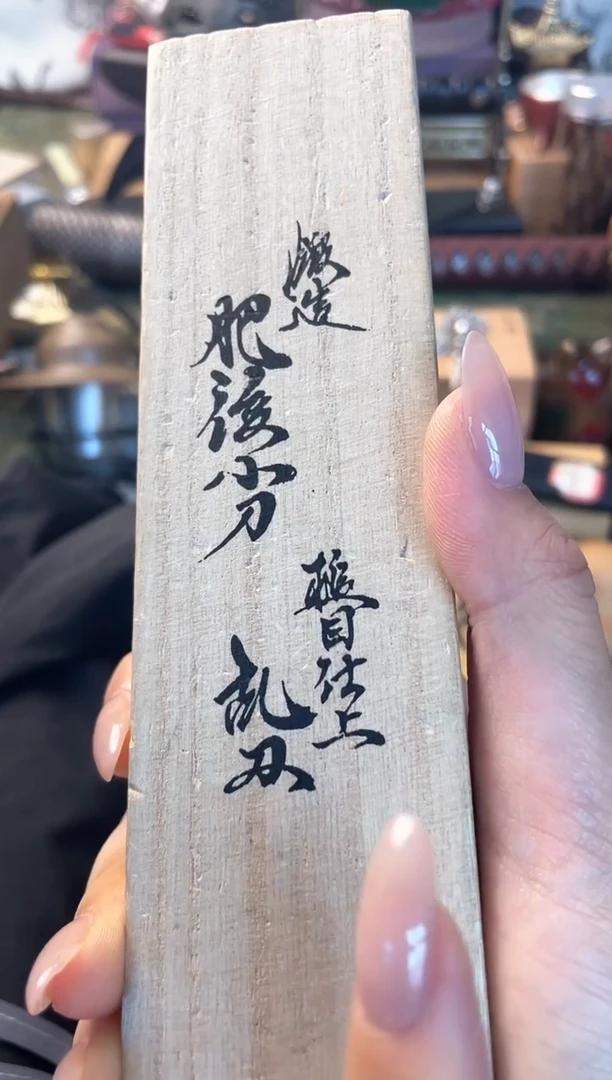 鍛造
肥後小刀
槌目仕上
乱刃